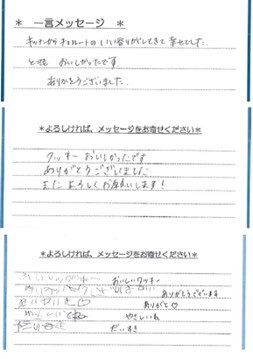 ＊ 一言メッセージ ＊
キッチンからチョコレートのいい香りがしてきて幸せでした。
とても おいしかったです
ありがとうございました。
＊よろしければ、メッセージをお寄せください＊
クッキー おいしかったです
ありがとうございました
またよろしくお願いします！
＊よろしければ、メッセージをお寄せください＊
おいしいクッキー
ありがとうございます
ありがと♡
やさしいね
だいすき